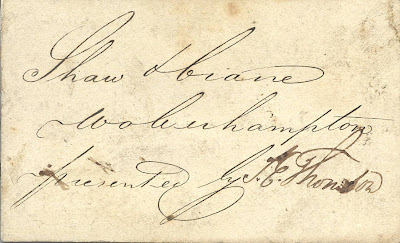 Shaw & Crane
Wolverhampton
presented by J. E. Thomson